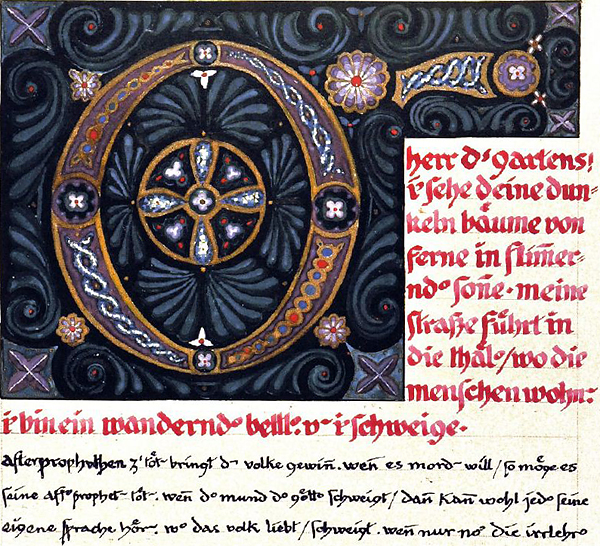 O
herr d' gartens!
i' sehe deine dun-
keln bäume von
ferne in flim̄er-
nd' son̄e. meine
straße führt in
die thäl'/wo die
menschen wohn:
i' bin ein wandernd' bettl'. v- i' schweige.
afterprophethen z' töt- bringt d- volke gewin̄. wen̄ es mord- will/so möge es
seine aft' prophet- töt-. wen̄ d' mund d' gött' schweigt/dan̄ kan̄ wohl jed' seine
eigene sprache hör-. wo das volk liebt/schweigt. wen̄ nur no' die irrlehr'